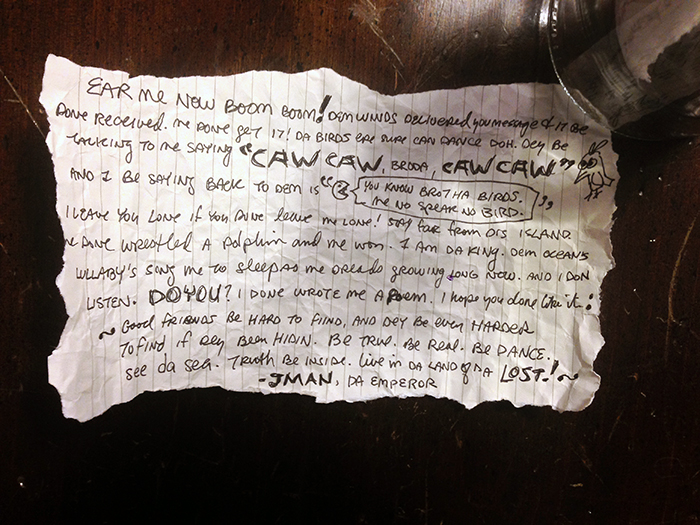 EAR ME NOW BOOM BOOM! DEM WINDS DELIVERED you MESSAGE & IT BE
DONE RECEIVED. ME DONE GET IT! DA BIRDS ERE SURE CAN DANCE DOH. DEY BE
TALKING TO ME SAYING "CAW CAW, BRODA, CAW CAW"
AND I BE SAYING BACK TO DEM IS "YOU KNOW BROTHA BIRDS.
ME NO SPEAK NO BIRD."
I LEAVE YOU LONE IF YOU DONE leave me LONE! STAY FAR FROM DIS ISLAND.
ME DONE WRESTLED A DOLPHIN and me won. I AM DA KING. DEM OCEANS
LULLABY'S SONG ME TO SLEEP AS ME DREADS GROWING LONG NOW. AND I DON
LISTEN. DO YOU? I DONE WROTE ME A POEM. I hope you done like it:
~ GOOD FRIENDS BE HARD TO FIIND, AND DEY BE even HARDER
TO find if DEY BEEN HIDIN. BE TRUE. BE REAL. BE DANCE.
SEE da sea. TRUTH BE INSIDE. Live in DA LAND of DA LOST! ~
-JMAN, DA EMPEROR